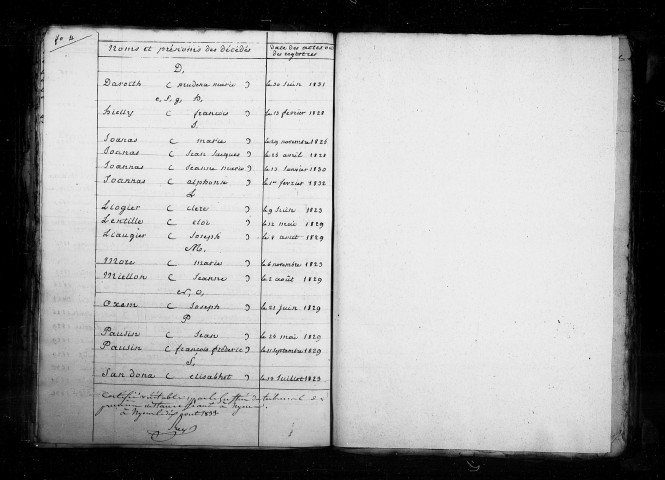 fo 4
Noms et prénoms des décédés
date des actes ou des registres
D.
Daroith ( marie ) le 30 Juin 1831
e, f, g, h,
hielly ( françois ) le 13 fevrier 1828
J.
Joanas ( marie ) le 29 novembre 1826
Joanas ( Jean Jacques ) le 26 avril 1828
Joannas ( Jeanne marie ) le 13 Janvier 1830
Joannas ( alphonse ) le 1er fevrier 1832
L
Liogier ( ) le 9 Juin 1823
Lentille ( eloi ) le 12 mai 1829
Liaugier ( Joseph ) le 8 avril 1829
M.
More ( marie ) le 6 novembre 1823
Miellon ( Jeanne ) le 2 août 1829
N, O,
Oxem ( Joseph ) le 21 juin 1829
P
Pausin ( Jean ) le 24 mai 1829
Pausin ( françois frederic ) le 11 septembre 1829
S,
Sandona ( elisabhet ) le 19 Juillet 1823
Certifié véritable par le Greffier du tribunal de
première instance séant à Nyons
à Nyons le dix août 1833